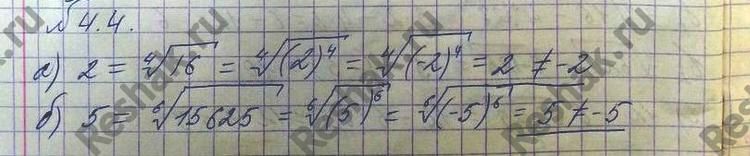 № 4.4.
а) 2 = ⁴√16 = ⁴√(2)⁴ = ⁴√(-2)⁴ = 2 ≠ -2
б) 5 = ⁶√15625 = ⁶√(5)⁶ = ⁶√(-5)⁶ = 5 ≠ -5
Reshak.ru
Reshak.ru
Reshak.ru